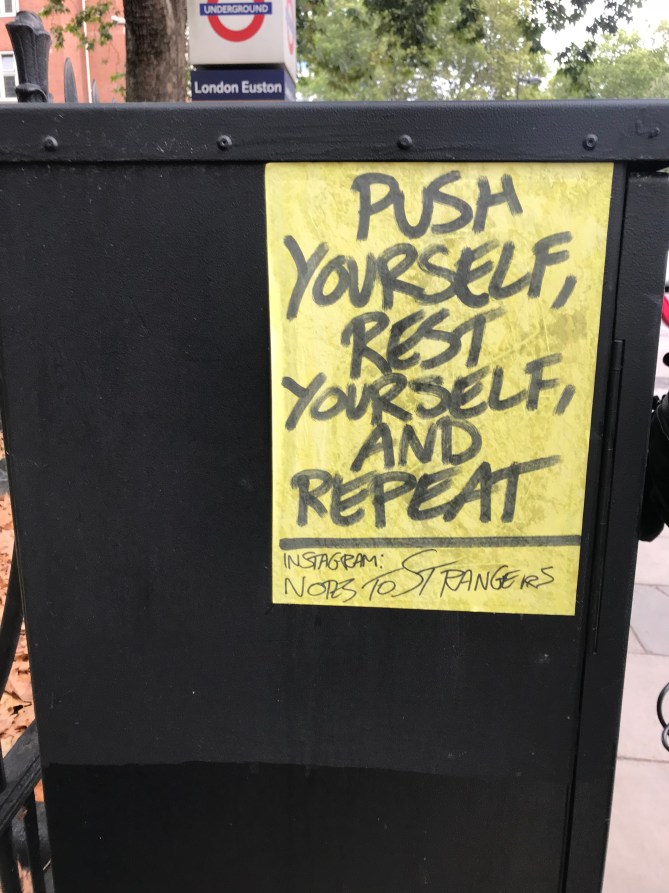 UNDERGROUND
London Euston
PUSH
YOURSELF,
REST
YOURSELF,
AND
REPEAT
INSTAGRAM:
NOTES TO STRANGERS